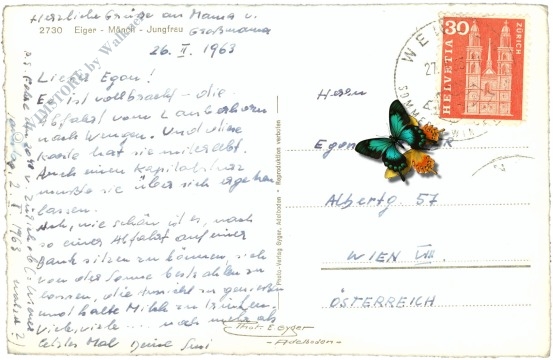 Herzliche Grüße an Mama u.
Großmama
2730 Eiger - Mönch - Jungfrau
26. II. 1963
Lieber Egon!
Es ist vollbracht - die
Abfahrt vom Lauberhorn
nach Wengen. Und diese
Karte hat sie miterlebt.
Auch einen Kapitalsturz
mußte sie über sich ergehen
lassen.
Ach, wie schön ist es, nach
so einer Abfahrt auf einer
Bank sitzen zu können, sich
von der Sonne bestrahlen zu
lassen, die Aussicht zu genießen
und kalte Milch zu trinken.
Viele, viele ... noch mehr als
letztes Mal Deine Susi
Photo-Verlag Gyger, Adelboden - Reproduktion verboten
Phot. E. Gyger
- Adelboden -
HELVETIA
30
ZÜRICH
WE
27.
SOMMER
WIN
Herrn
Egon
R
Albertg. 57
WIEN VIII.
ÖSTERREICH
by